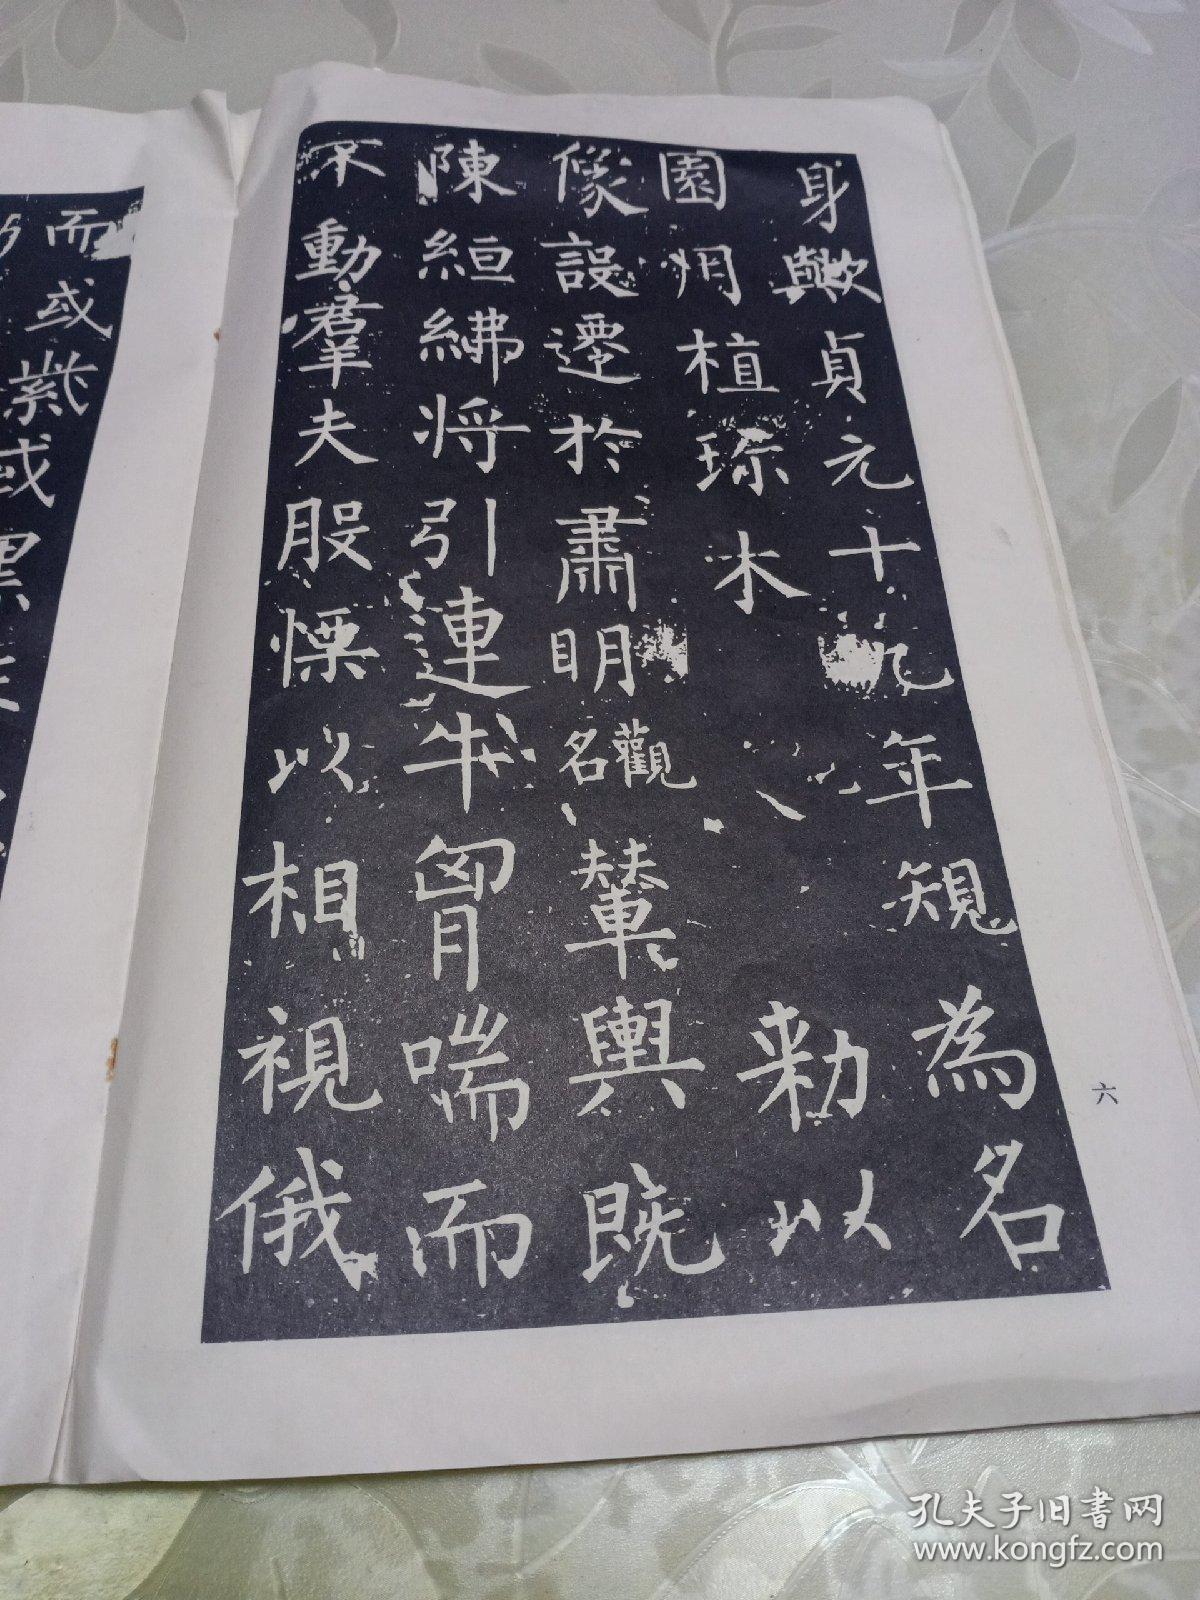 身歟貞元十九年規為名
園用植珎木 勅以
像設遷於肅明觀名輦輿既
陳絙紼將引連牛䏰喘而
不動羣夫股慄以相視俄
六
而或紫或
孔夫子旧书网
www.kongfz.com